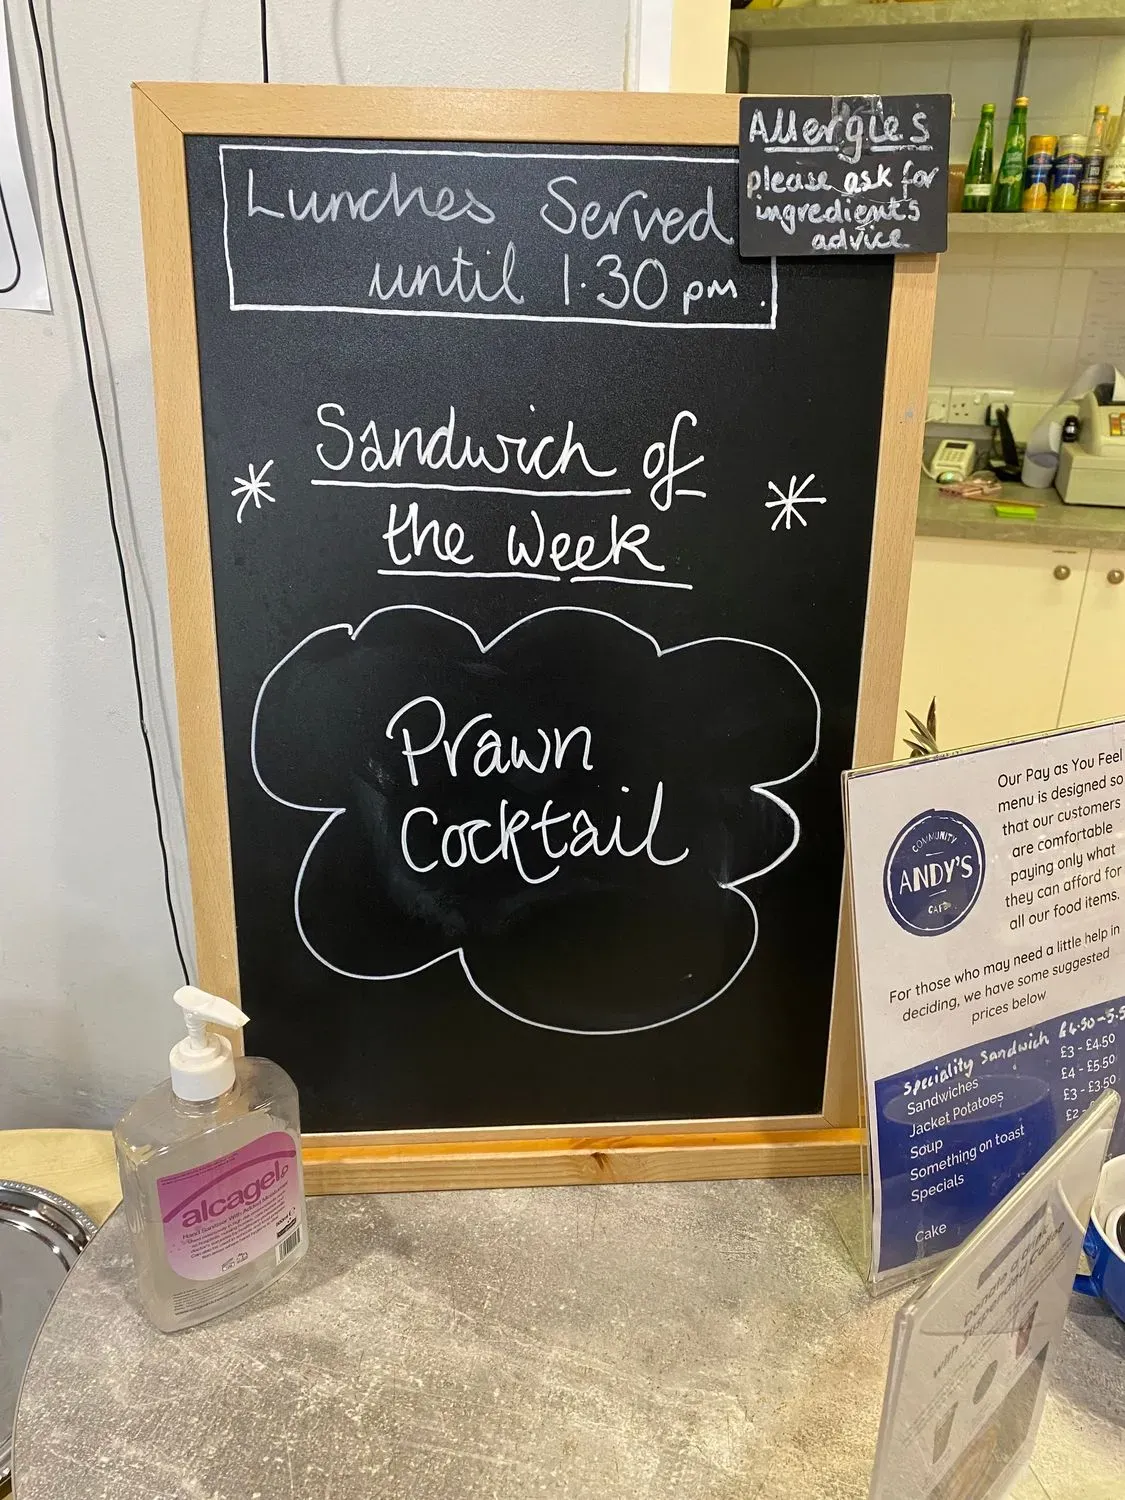 Lunches Served
until 1.30 pm.
Allergies
please ask for
ingredients
advice
Sandwich of
the Week
Prawn
Cocktail
Our Pay as You Feel
menu is designed so
that our customers
are comfortable
paying only what
they can afford for
all our food items.
COMMUNITY
ANDY'S
CAFE
For those who may need a little help in
deciding, we have some suggested
prices below
Speciality Sandwich £4.50-5.5
Sandwiches £3 - £4.50
Jacket Potatoes £4 - £5.50
Soup £3 - £3.50
Something on toast £2 -
Specials
Cake
alcagel
Hand Sanitiser With Added Moisturiser
500ml e
Donate a drink
with
Suspended Coffee